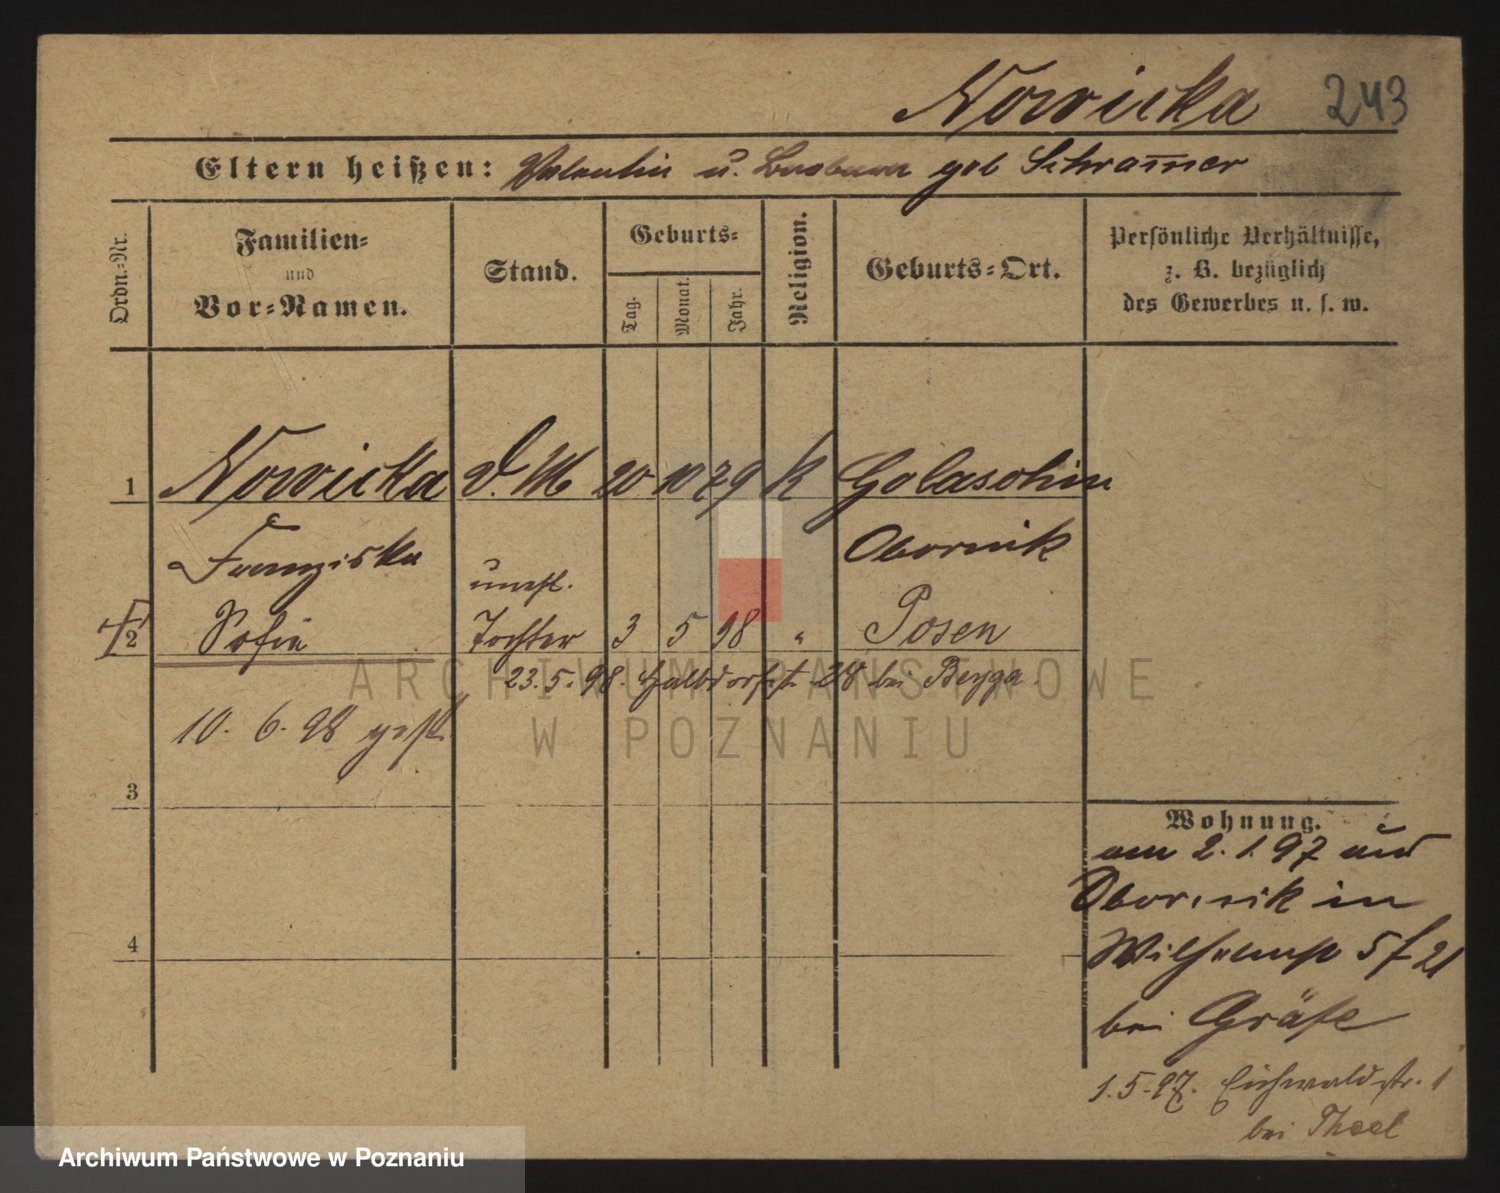 Nowicka 243
Eltern heißen: Valentin u. Barbara geb Schram̅er
Ordn.=Nr.
Familien=
und
Vor=Namen.
Stand.
Geburts=
Tag.
Monat.
Jahr.
Religion.
Geburts=Ort.
Persönliche Verhältnisse,
z. B. bezüglich
des Gewerbes u. s. w.
1 Nowicka D. M 20 10 79 k Golaschin
Franziska Obornik
unehl.
2 Sofia Tochter 3 5 98 " Posen
23.5.98. Halbdorfst. 28 bei Beyga
10. 6. 98 gest.
3
4
Wohnung.
am 2. 1. 97 aus
Obornik in
Wilhelmst 5 21
bei Gräfe
1. 5. 97. Eichwaldstr. 1
bei Theel
ARCHIWUM PAŃSTWOWE
W POZNANIU
Archiwum Państwowe w Poznaniu